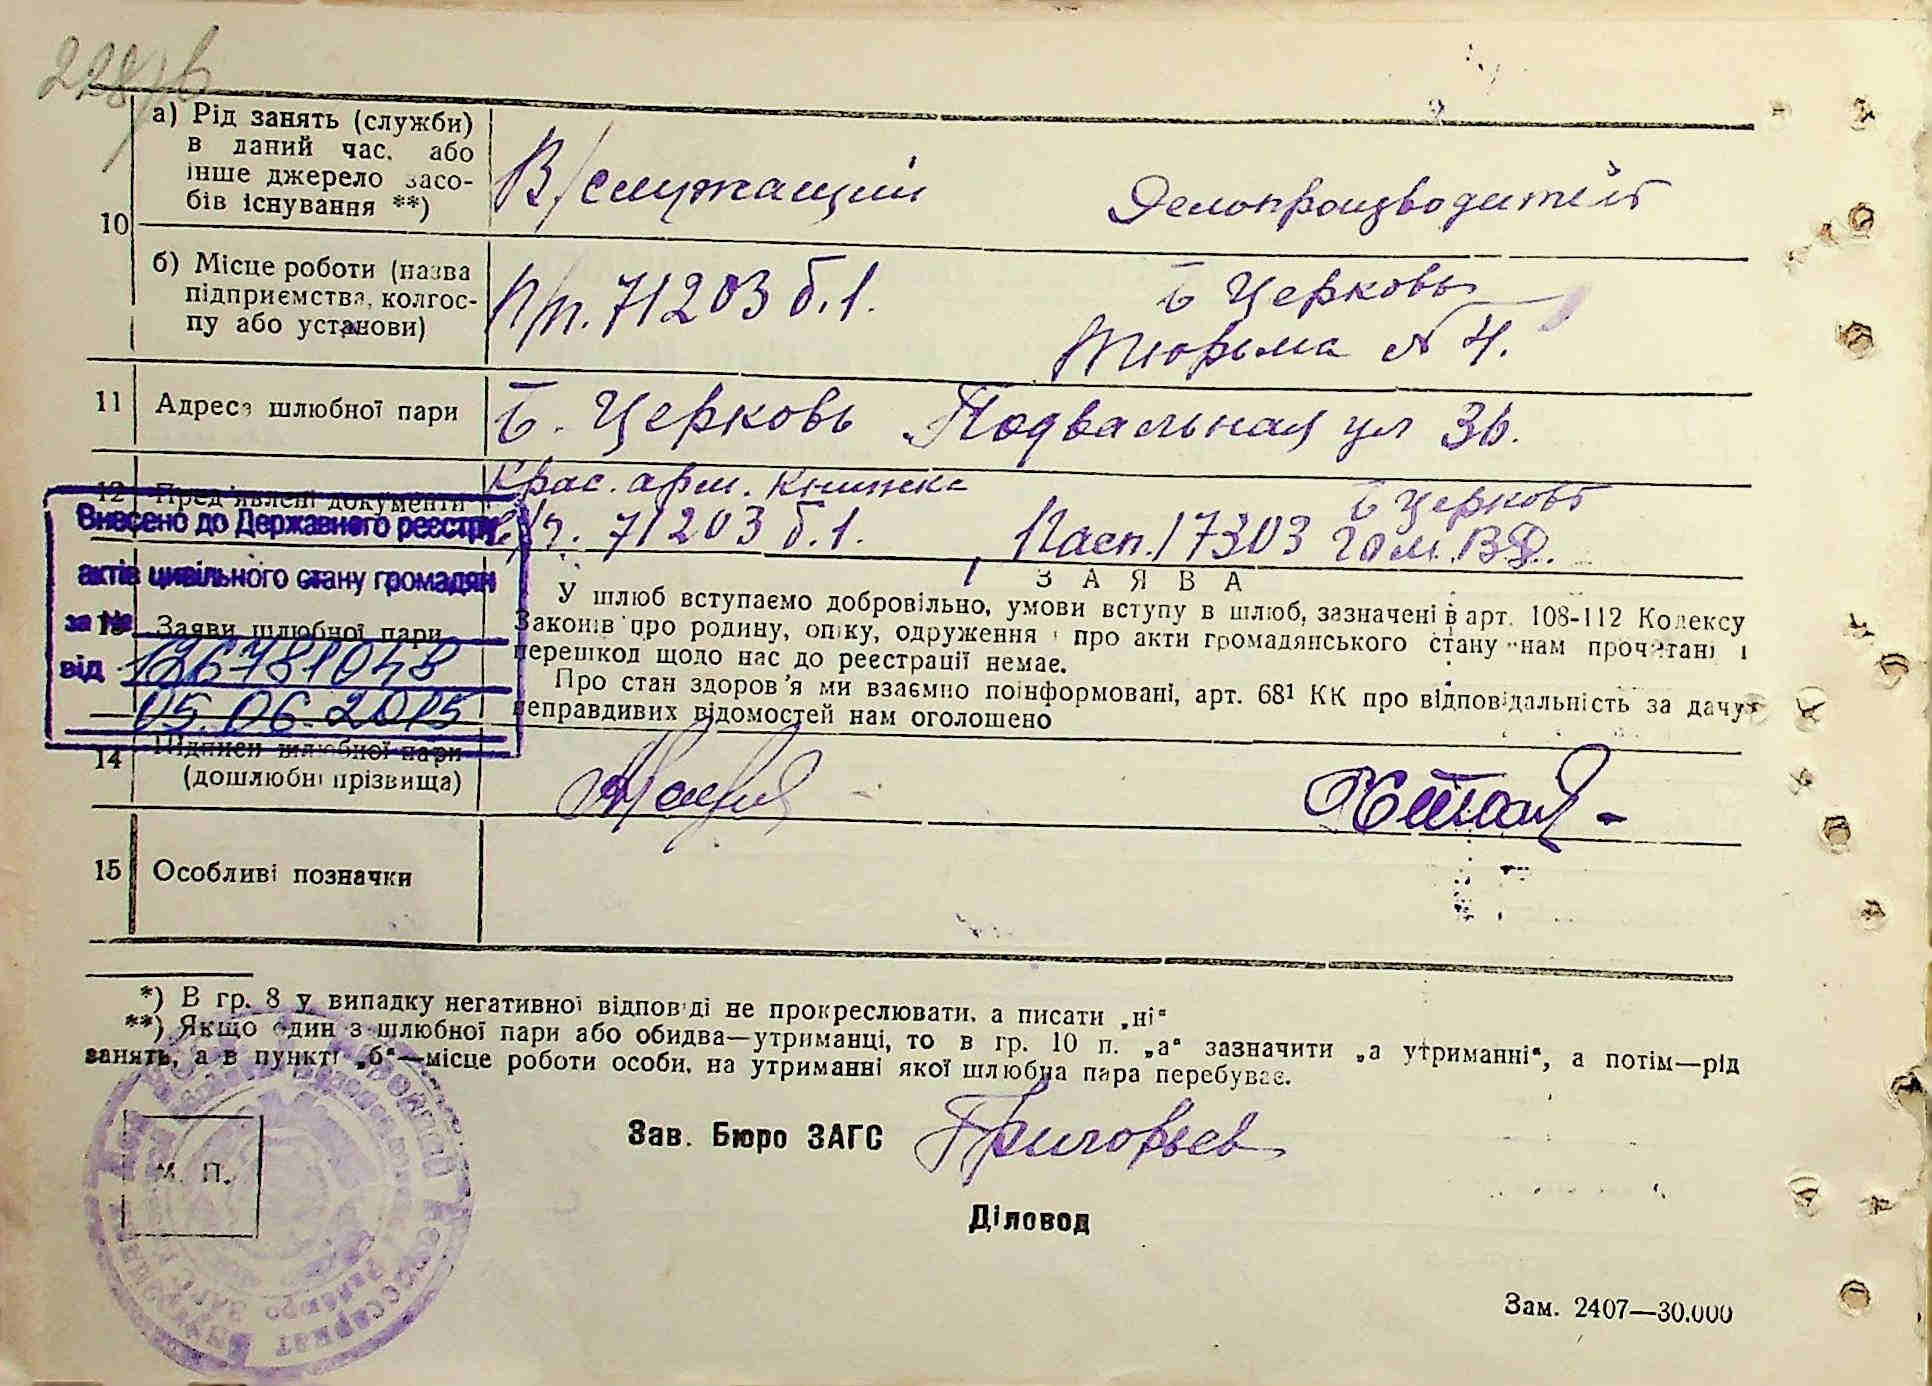 а) Рід занять (служби)
в даний час, або
інше джерело засо-
бів існування **)
В/служащий
Делопроизводитель
10
б) Місце роботи (назва
підприємства, колгос-
пу або установи)
П/п. 71203 б.1.
Б Церковь
Тюрьма № 4.
11
Адреса шлюбної пари
Б. Церковь Подвальная ул 36.
12
Пред'явлені документи
Крас. арм. книжка
71203 б.1.
Б Церковь
Пасп. 17303 гом.
Внесено до Державного реєстру
актів цивільного стану громадян
за №
126781048
від
05.06.2015
13
Заяви шлюбної пари
ЗАЯВА
У шлюб вступаємо добровільно, умови вступу в шлюб, зазначені в арт. 108-112 Кодексу
Законів про родину, опіку, одруження і про акти громадянського стану нам прочитані і
перешкод щодо нас до реєстрації немає.
Про стан здоров'я ми взаємно поінформовані, арт. 68¹ КК про відповідальність за дачу
неправдивих відомостей нам оголошено
14
Підписи шлюбної пари
(дошлюбні прізвища)
15
Особливі позначки
*) В гр. 8 у випадку негативної відповіді не прокреслювати, а писати „ні“
**) Якщо один з шлюбної пари або обидва—утриманці, то в гр. 10 п. „а“ зазначити „а утриманні“, а потім—рід
занять, а в пункті „б“—місце роботи особи, на утриманні якої шлюбна пара перебуває.
М. П.
Зав. Бюро ЗАГС Григорьев
Діловод
Зам. 2407—30.000